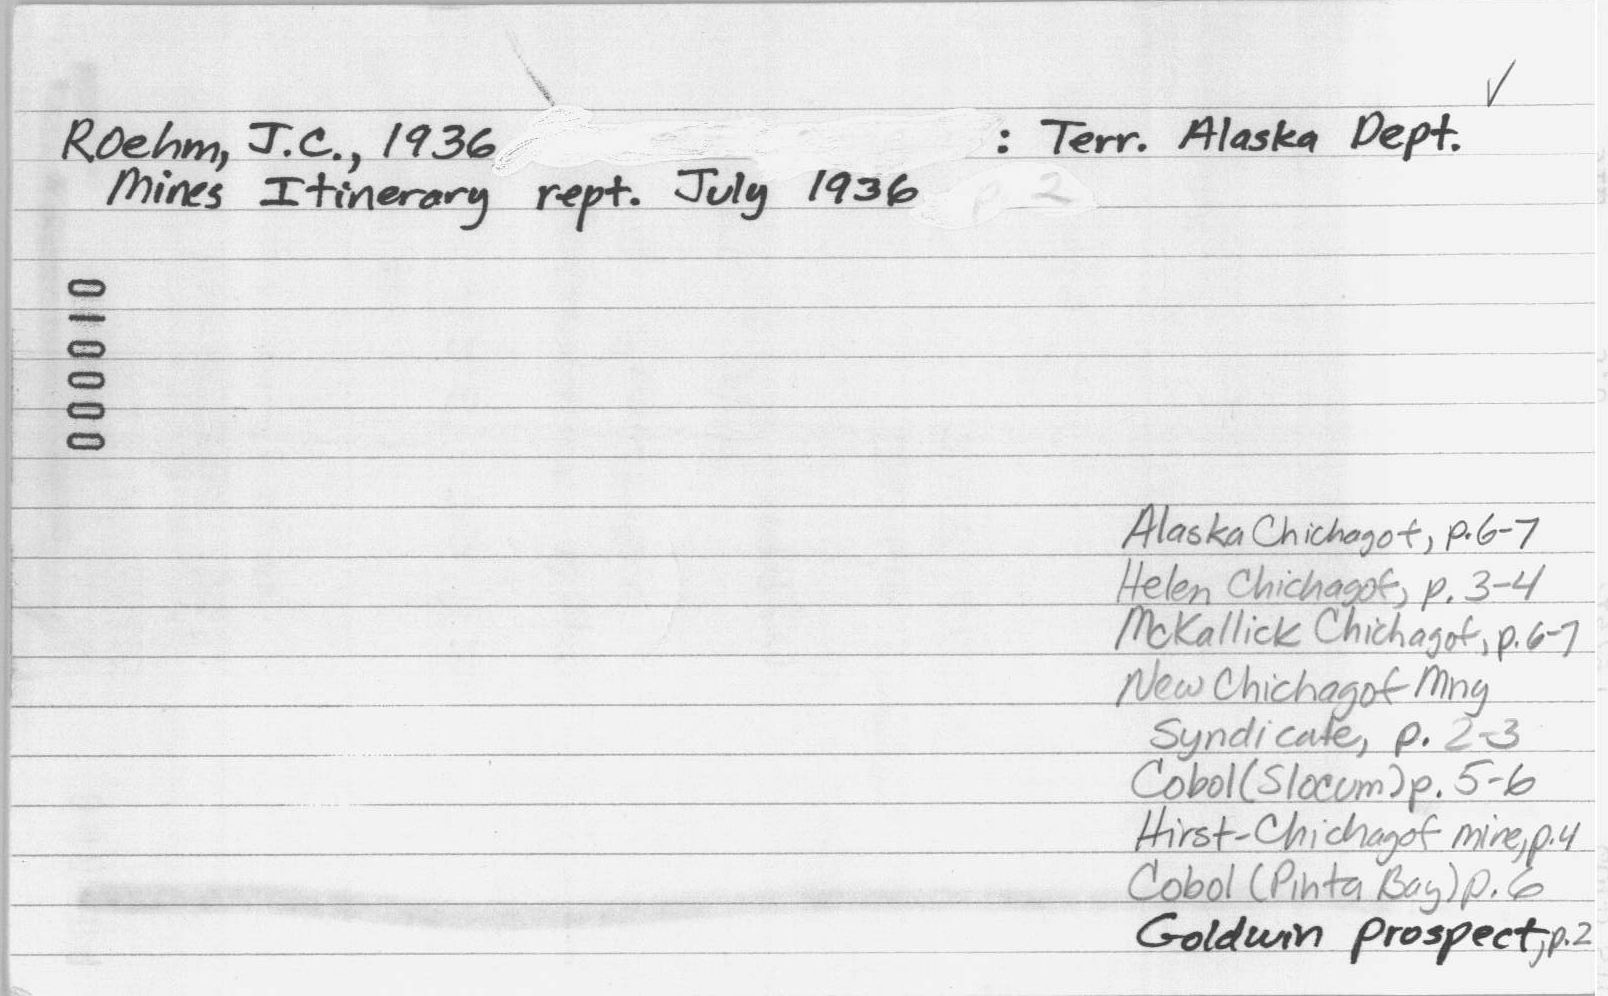 ✓
Roehm, J.C., 1936 : Terr. Alaska Dept.
Mines Itinerary rept. July 1936 p 2
000010
Alaska Chichagof, p.6-7
Helen Chichagof, p. 3-4
McKallick Chichagof, p.6-7
New Chichagof Mng
Syndicate, p. 2-3
Cobol (Slocum) p. 5-6
Hirst-Chichagof mine, p.4
Cobol (Pinta Bay) p. 6
Goldwin prospect, p.2